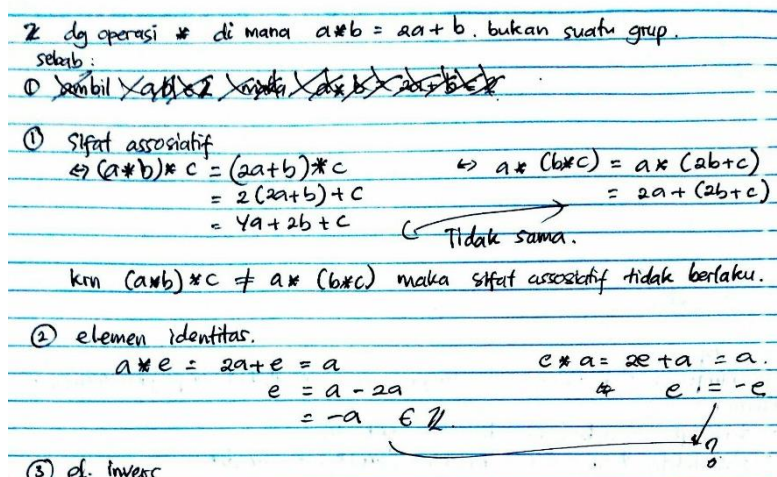 ℤ dg operasi * di mana a*b = 2a + b. bukan suatu grup.
sebab:
① Ambil a,b ∈ ℤ maka a * b = 2a + b ∈ ℤ
① Sifat assosiatif
⇔ (a*b)* c = (2a+b)*c ⇔ a* (b*c) = a* (2b+c)
= 2(2a+b)+c = 2a + (2b+c)
= 4a + 2b + c Tidak sama.
krn (a*b)*c ≠ a* (b*c) maka sifat assosiatif tidak berlaku.
② elemen identitas.
a*e = 2a+e = a e*a = 2e+a = a.
e = a - 2a ⇔ e = -e
= -a ∈ ℤ ?
③ el. invers